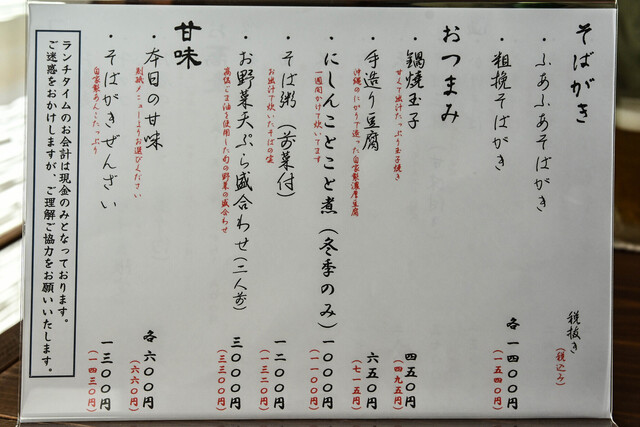 そばがき
税抜き
(税込み)
・ふあふあそばがき
・粗挽そばがき
各一四〇〇円
(一五四〇円)
おつまみ
・鍋焼玉子
四五〇円
甘くて出汁たっぷり玉子焼き
(四九五円)
・手造り豆腐
六五〇円
沖縄のにがりで造った自家製濃厚豆腐
(七一五円)
・にしんことこと煮(冬季のみ)
一〇〇〇円
一週間かけて炊いてます
(一一〇〇円)
・そば粥(前菜付)
一二〇〇円
お出汁で炊いたそばの実
(一三二〇円)
・お野菜天ぷら盛合わせ(二人前)
三〇〇〇円
高級ごま油を使用した旬の野菜の盛合わせ
(三三〇〇円)
甘味
・本日の甘味
各六〇〇円
別紙メニューよりお選びください
(六六〇円)
・そばがきぜんざい
一三〇〇円
自家製あんこたっぷり
(一四三〇円)
ランチタイムのお会計は現金のみとなっております。
ご迷惑をおかけしますが、ご理解ご協力をお願いいたします。